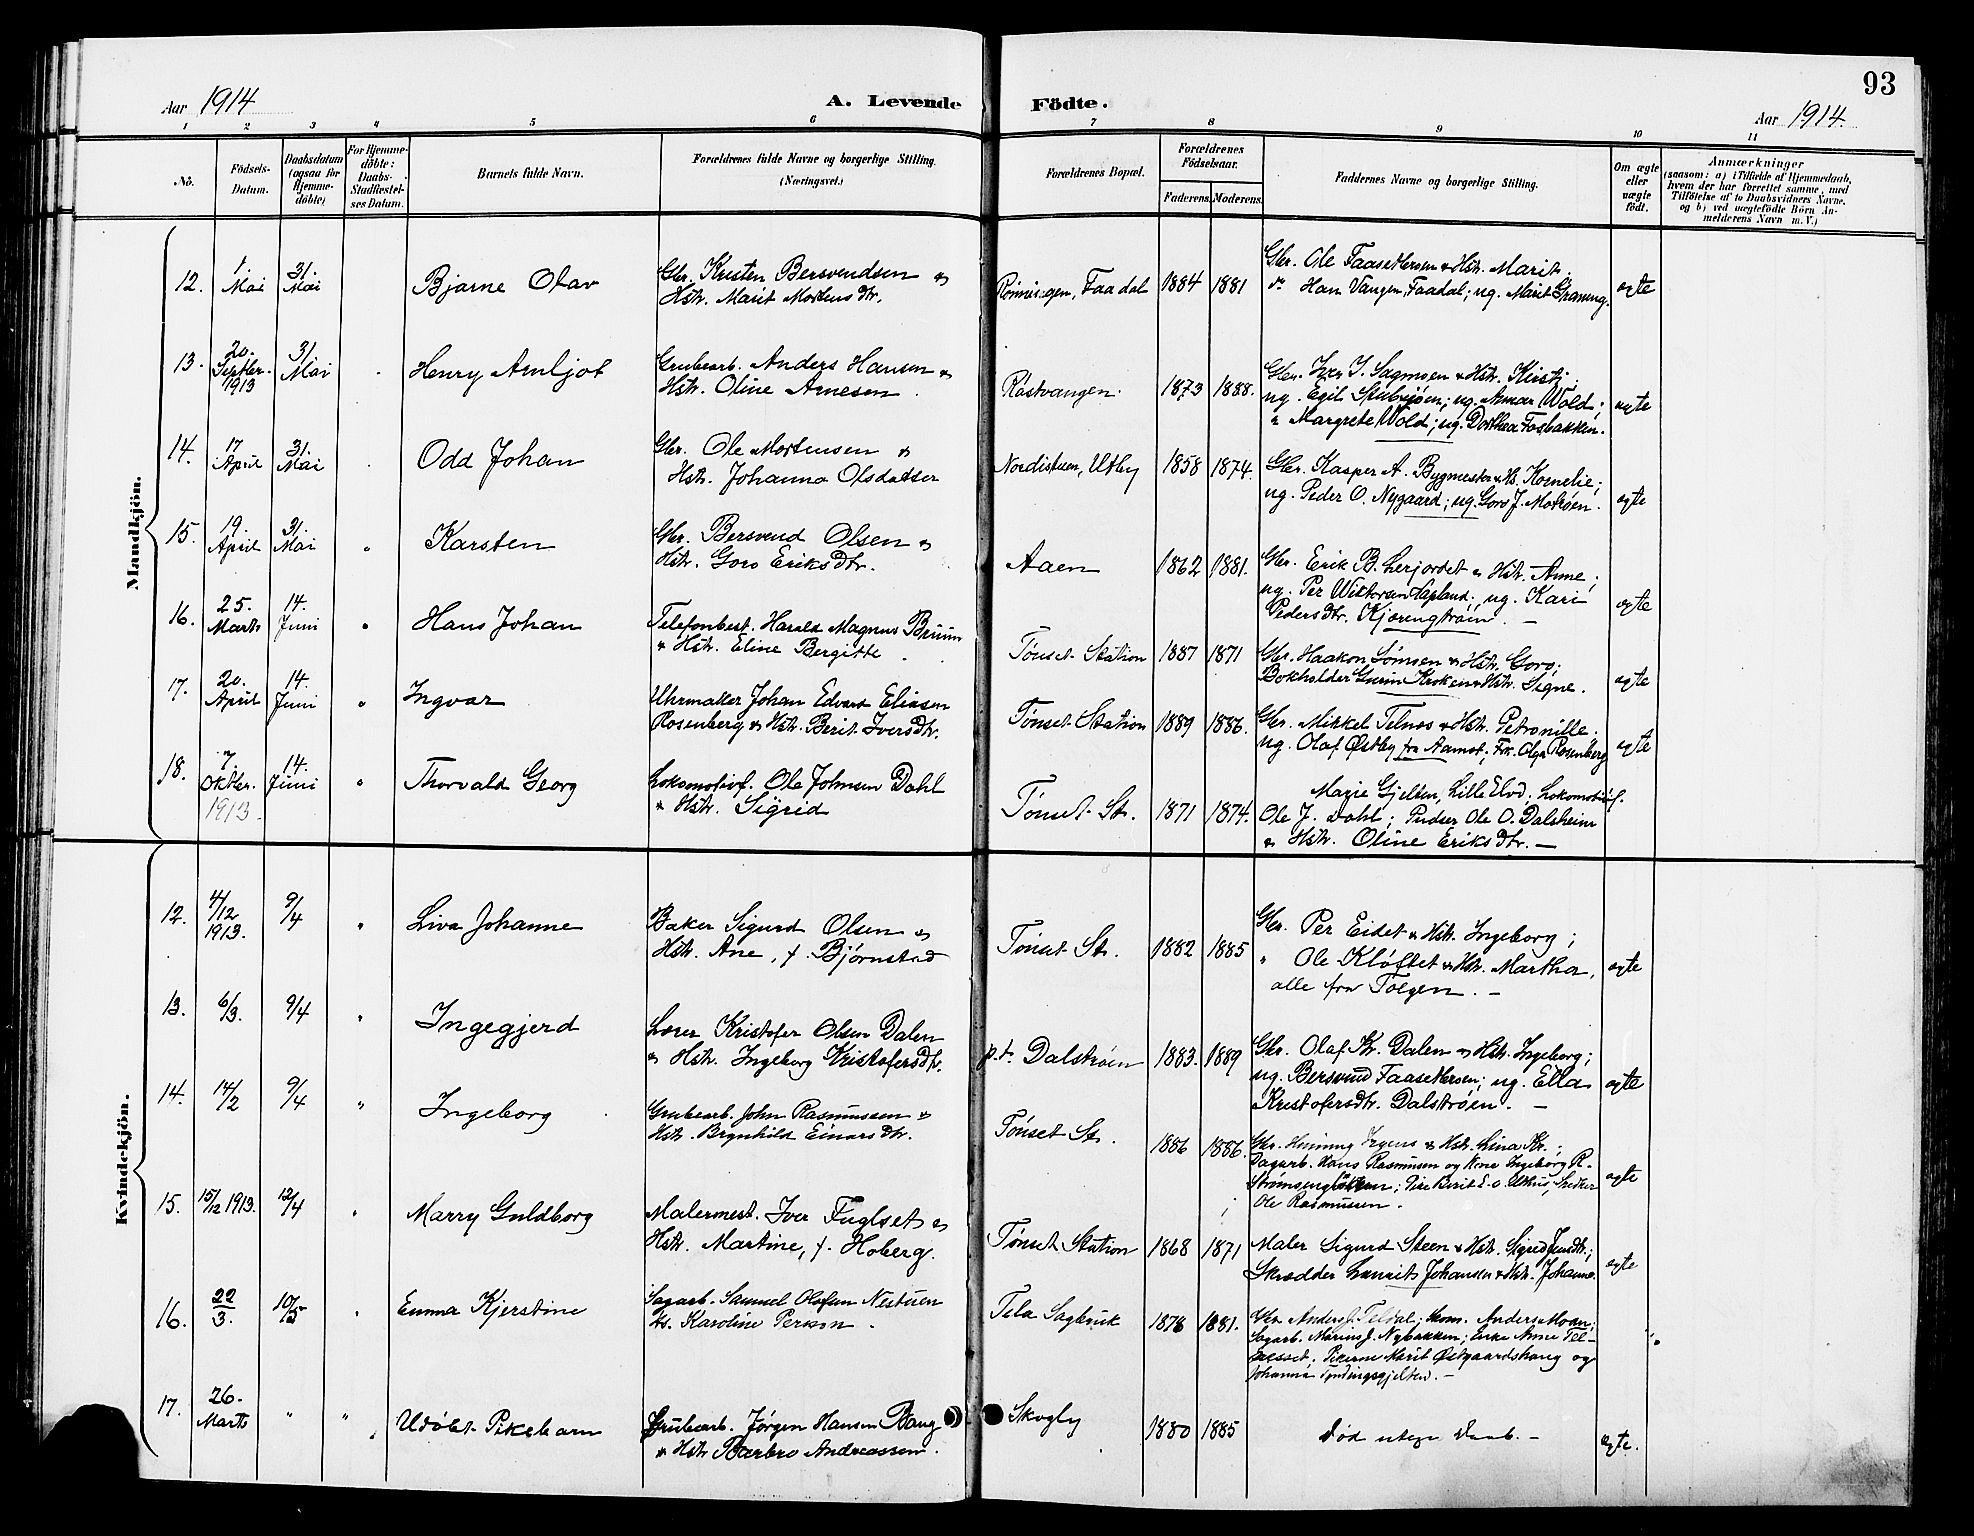 93
Aar 1914
A. Levende Födte.
Aar 1914.
1 2 3 4 5 6 7 8 9 10 11
No.
Födsels-Datum.
Daabsdatum (ogsaa for Hjemme-döbte)
For Hjemme-döbte: Daabs-Stadfæstel-ses Datum.
Barnets fulde Navn.
Forældrenes fulde Navne og borgerlige Stilling.
(Næringsvei.)
Forældrenes Bopæl.
Forældrenes Födselsaar.
Faderens. Moderens.
Faddernes Navne og borgerlige Stilling.
Om ægte eller uægte födt.
Anmærkninger
(saasom: a) i Tilfælde af Hjemmedaab,
hvem der har forrettet samme, med
Tilföielse af to Daabsvidners Navne.
og b) ved uægtefödte Börn An-
melderens Navn m. V.)
Mandkjön.
12. 1 Mai 31 Mai Bjarne Olav
Gbr. Kristen Bersvendsen &
Hstr. Marit Mortensdtr.
Rønningen, Faadal 1884 1881
Gbr. Ole Faasettersen & Hstr. Marit;
do Hans Vangen, Faadal; ug. Marit Graneng. egte
13. 20. Septbr. 1913 31 Mai Henry Arnljot
Grubearb. Anders Hansen &
Hstr. Oline Arnesen.
Røstvangen. 1873 1888.
Gbr. Ivar I. Sagmoen & Hstr. Kirsti;
ug. Egil Stubsjøen; ug. Annar Wold;
" Margrete Wold; ug. Dorthea Fosbakken. egte
14. 17 April 31 Mai Odd Johan
Gbr. Ole Mortensen &
Hstr. Johanna Olsdatter
Nordistuen, Utby 1858 1874.
Gbr. Kasper A. Bygmester & Hs. Kornelie;
ug. Peder O. Nygaard; ug. Goro J. Motrøen. egte
15. 19. April 31 Mai " Karsten
Gbr. Bersvend Olsen &
Hstr. Goro Eriksdtr.
Aaen 1862 1881.
Gbr. Erik B. Lerjordet & Hstr. Anne;
ug. Per Wiktorsen Lapland; ug. Kari
Pedersdtr. Kjørengtrøen. — egte
16. 25. Marts 14. Juni " Hans Johan
Telefonbest. Harald Magnus Bruun
& Hstr. Eline Bergitte.
Tønset Station 1887 1871
Gbr. Haakon Tømsen & Hstr. Goro;
Bokholder Gunnar Kroken & Hstr. Signe. egte
17. 20. April 14. Juni " Ingvar
Uhrmaker Johan Edvard Eliasen
Rosenberg & Hstr. Berit Iversdtr.
Tønset Station 1889 1886.
Gbr. Mikkel Telnes & Hstr. Petronille;
ug. Olaf Østby fra Aamot; Frk. Olga Rosenberg egte
18. 7. Oktbr. 1913. 14. Juni " Thorvald Georg
Lokomotivf. Ole Johnsen Dahl
& Hstr. Sigrid
Tønset St. 1871 1874.
Marie Gjelten, Lille Elvd. Lokomotivf.
Ole J. Dahl; Pudser Ole O. Dalsheim
& Hstr. Oline Eriksdtr. — egte
Kvindekjön.
12. 4/12 1913. 9/4 " Liva Johanne
Baker Sigurd Olsen &
Hstr. Ane, f. Bjørnstad
Tønset St. 1882 1885
Gbr. Per Eidet & Hstr. Ingeborg;
" Ole Kløftet & Hstr. Martha,
alle fra Tolgen. — egte
13. 6/3. 9/4 " Ingegjerd
Lærer Kristofer Olsen Dalen
& Hstr. Ingeborg Kristofersdtr.
p.t. Dalstrøen 1883. 1889
Gbr. Olaf Kr. Dalen & Hstr. Ingeborg;
ug. Bersvend Faasettersen; ug. Ella
Kristofersdtr. Dalstrøen. — egte
14. 14/2 9/4 " Ingeborg
Grubearb. John Rasmussen &
Hstr. Brynhild Einarsdtr.
Tønset St. 1886 1886.
Gbr. Henning & Hstr. Lina Kr.;
Dagarb. Hans Rasmussen og Kone Ingeborg R.
Pike Berit E. Uthus; Snekker
Ole Rasmussen. egte
15. 15/12 1913. 12/4 " Marry Guldborg
Malermest. Iver Fuglset &
Hstr. Martine, f. Hoberg.
Tønset Station 1868 1871
Maler Sigurd Steen & Hstr. Sigrid Jensdtr.;
Skrædder Laurits Johansen & Hstr. Johanne. egte
16. 22/3. 10/5 " Emma Kjerstine
Sagarb. Samuel Olofsen Nestuen
Hs. Karoline Person.
Tela Sagbruk 1878 1881.
Gbr. Anders J. Teldal; Anders Moan;
Sagarb. Marius J. Nybakken; Enke Anne Tel-
nesset. Pikerne Marit Østgaardshaug og
Johanna Tyldingsgjelten. — "
17. 26. Marts " " Udøbt Pikebarn
Grubearb. Jørgen Hansen Bang
& Hstr Barbro Andreassen.
Skogly 1880 1885
Død uden Daab. — egte.